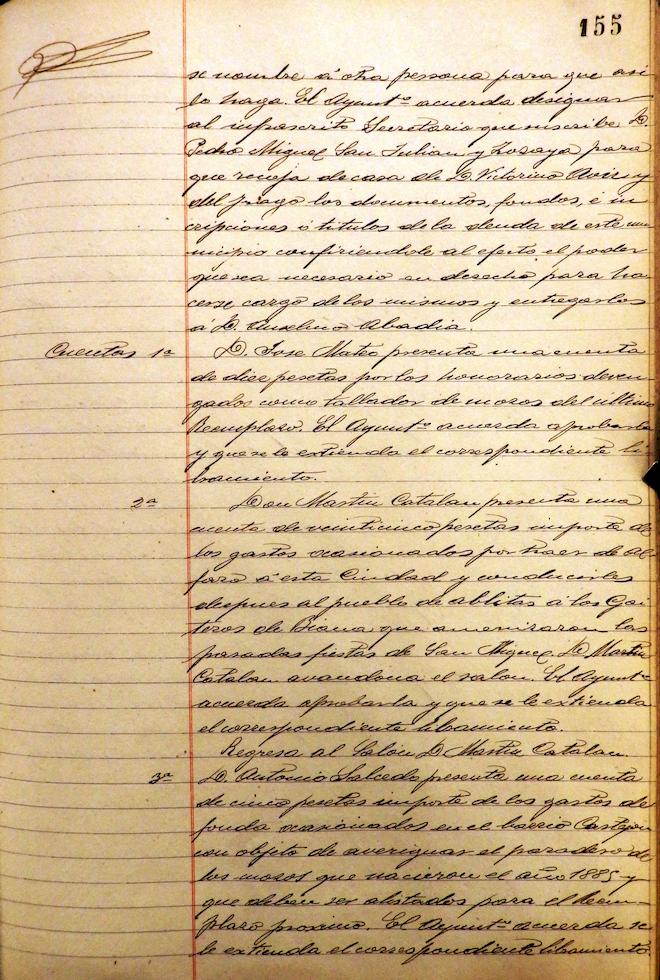 155
se nombre á otra persona para que asi
lo haga. El Ayuntº acuerda designar
al infrascrito Secretario que suscribe D.
Pedro Miguel San Julian y Lozaya para
que recoja de casa de D. Victorino y
del pago los documentos, fondos, é in
cripciones ó titulos de la deuda de este mu
nicipio confiriendole al efecto el poder
que sea necesario en derecho para ha
cerse cargo de los mismos y entregarlos
a D. Anselmo Abadia.
Cuentas 1ª D. Jose Mateo presenta una cuenta
de diez pesetas por los honorarios deven
gados como tallador de mozos del último
Reemplazo. El Ayuntº acuerda aprobarla
y que se le extienda el correspondiente li
bramiento.
2ª Don Martin Catalan presenta una
cuenta de veinticinco pesetas importe de
los gastos ocasionados por traer de Al
faro á esta Ciudad y conducirles
despues al pueblo de ablitas á los Gai
teros de Biana que amenizaron las
pasadas fiestas de San Miguel. D. Martin
Catalan avandona el salon. El Ayuntº
acuerda aprobarla y que se le extienda
el correspondiente libramiento.
Regresa al Salon D. Martin Catalan.
3ª D. Antonio Salcedo presenta una cuenta
de cinco pesetas importe de los gastos de
fonda ocasionados en el barrio Castejon
con objeto de averiguar el paradero de
los mozos que nacieron el año 1885 y
que deben ser alistados para el Reem-
plazo proximo. El Ayuntº acuerda se
le extienda el correspondiente libramiento.